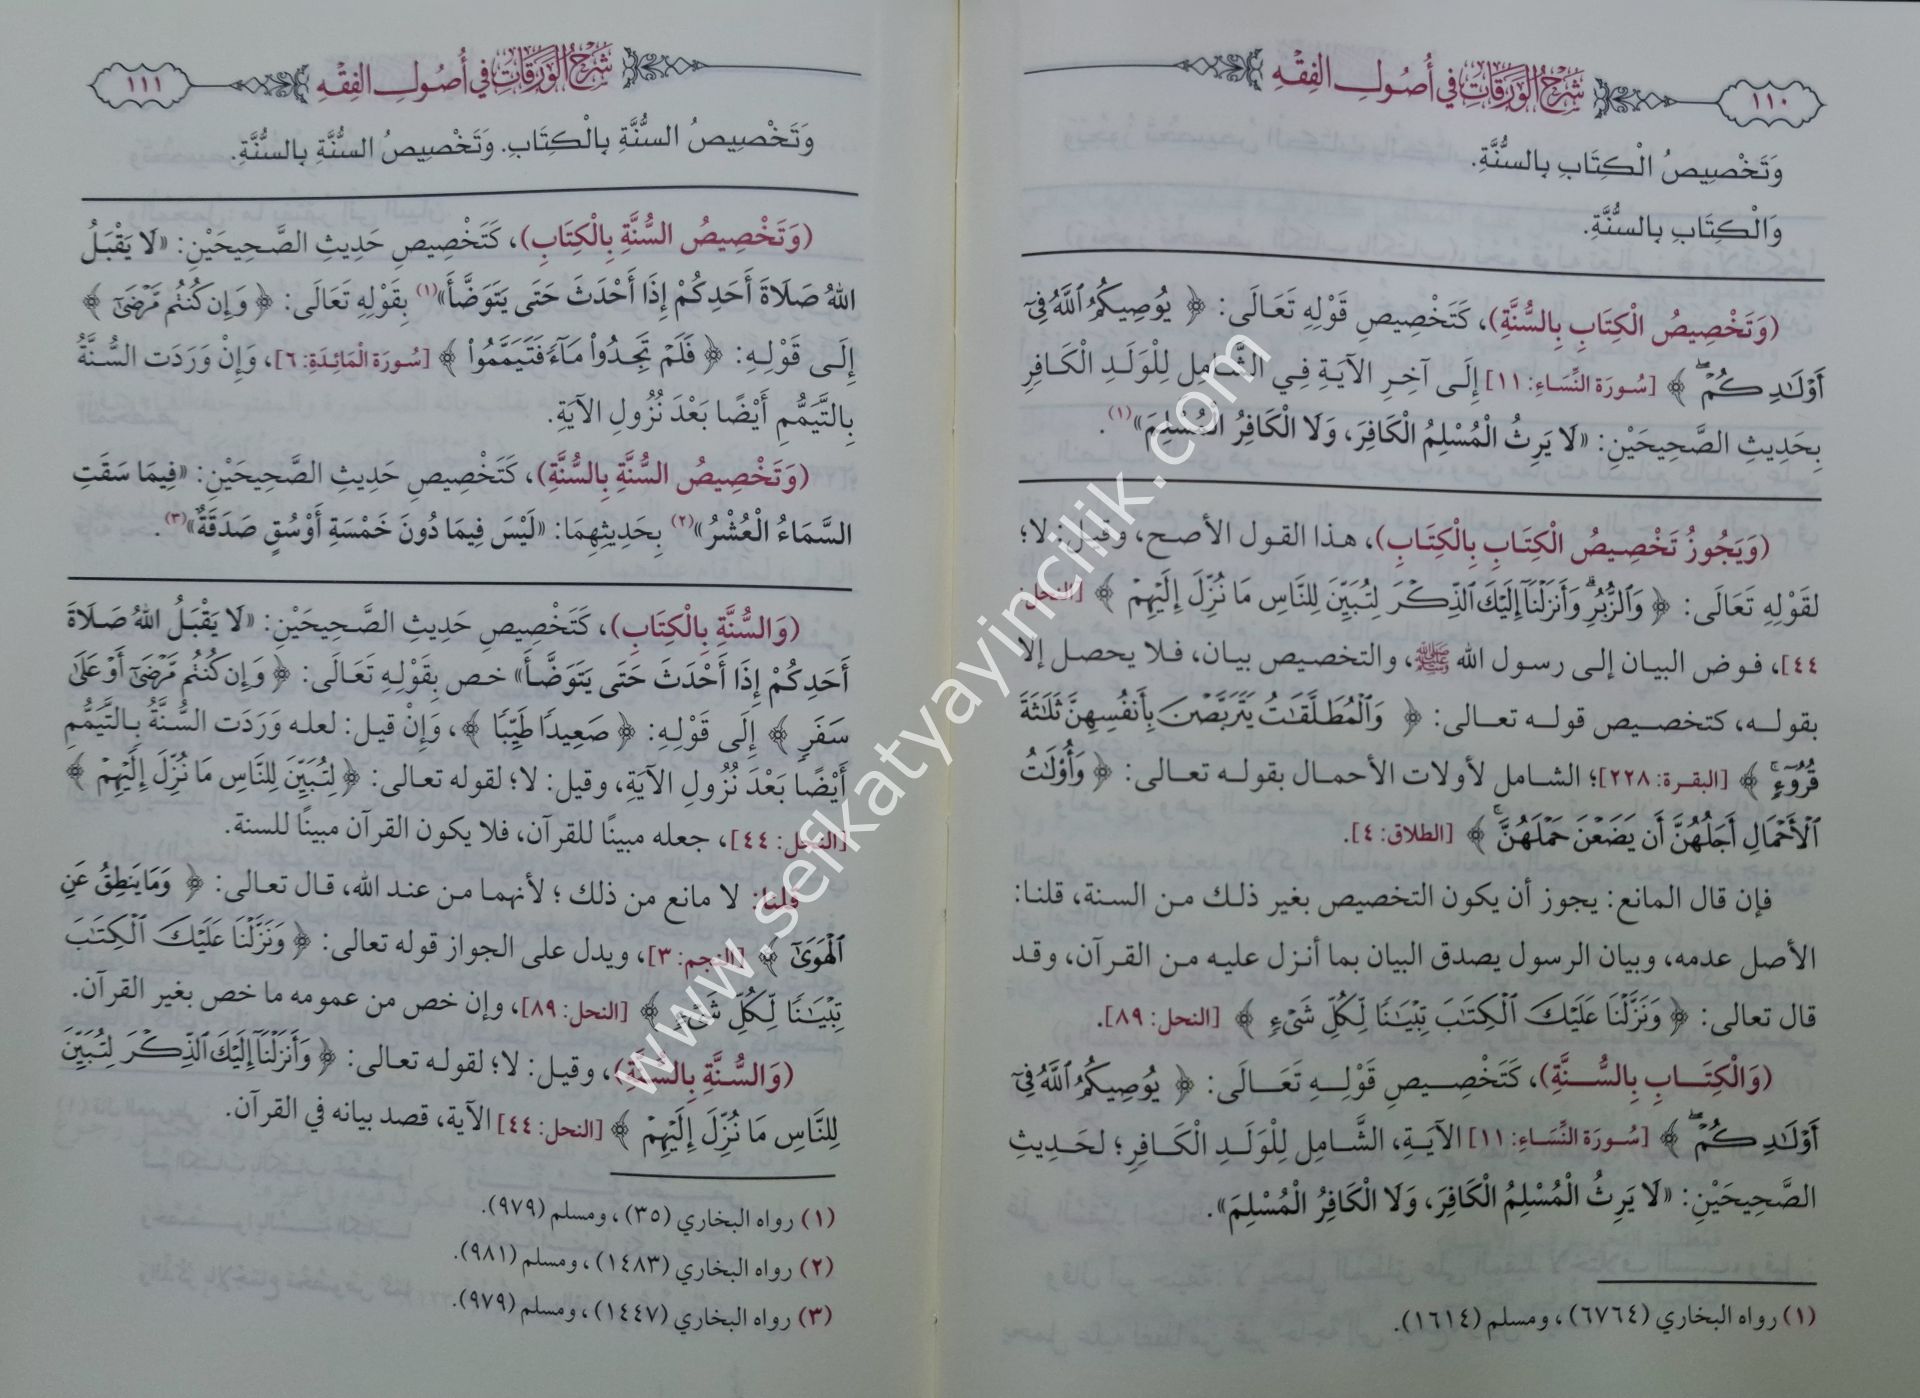 شَرْحُ الوَرَقَاتِ فِي أُصُولِ الفِقْهِ
١١٠
وَتَخْصِيصُ الْكِتَابِ بِالسُّنَّةِ.
وَالْكِتَابِ بِالسُّنَّةِ.
(وَتَخْصِيصُ الْكِتَابِ بِالسُّنَّةِ)، كَتَخْصِيصِ قَوْلِهِ تَعَالَى: ﴿ يُوصِيكُمُ اللَّهُ فِيٓ
أَوْلَٰدِكُمْ ۖ ﴾ [سُورَة النِّسَاءِ: ١١] إِلَى آخِرِ الآيَةِ فِي الشَّامِلِ لِلْوَلَدِ الْكَافِرِ
بِحَدِيثِ الصَّحِيحَيْنِ: «لَا يَرِثُ الْمُسْلِمُ الْكَافِرَ، وَلَا الْكَافِرُ الْمُسْلِمَ»(١).
(وَيَجُوزُ تَخْصِيصُ الْكِتَابِ بِالْكِتَابِ)، هذا القول الأصح، وقيل: لا؛
لقوله تعالى: ﴿ وَالزُّبُرِ ۗ وَأَنزَلْنَآ إِلَيْكَ الذِّكْرَ لِتُبَيِّنَ لِلنَّاسِ مَا نُزِّلَ إِلَيْهِمْ ﴾ [النحل:
٤٤]، فوض البيان إلى رسول الله ﷺ، والتخصيص بيان، فلا يحصل إلا
بقوله، كتخصيص قوله تعالى: ﴿ وَالْمُطَلَّقَٰتُ يَتَرَبَّصْنَ بِأَنفُسِهِنَّ ثَلَٰثَةَ
قُرُوٓءٍ ۚ ﴾ [البقرة: ٢٢٨]؛ الشامل لأولات الأحمال بقوله تعالى: ﴿ وَأُوْلَٰتُ
الْأَحْمَالِ أَجَلُهُنَّ أَن يَضَعْنَ حَمْلَهُنَّ ۚ ﴾ [الطلاق: ٤].
فإن قال المانع: يجوز أن يكون التخصيص بغير ذلك من السنة، قلنا:
الأصل عدمه، وبيان الرسول يصدق البيان بما أنزل عليه من القرآن، وقد
قال تعالى: ﴿ وَنَزَّلْنَا عَلَيْكَ الْكِتَٰبَ تِبْيَٰنًا لِّكُلِّ شَيْءٍ ﴾ [النحل: ٨٩].
(وَالْكِتَابِ بِالسُّنَّةِ)، كَتَخْصِيصِ قَوْلِهِ تَعَالَى: ﴿ يُوصِيكُمُ اللَّهُ فِيٓ
أَوْلَٰدِكُمْ ۖ ﴾ [سُورَة النِّسَاءِ: ١١] الآيَةِ، الشَّامِلِ لِلْوَلَدِ الْكَافِرِ؛ لحَدِيثِ
الصَّحِيحَيْنِ: «لَا يَرِثُ الْمُسْلِمُ الْكَافِرَ، وَلَا الْكَافِرُ الْمُسْلِمَ».
(١) رواه البخاري (٦٧٦٤)، ومسلم (١٦١٤).
شَرْحُ الوَرَقَاتِ فِي أُصُولِ الفِقْهِ
١١١
وَتَخْصِيصُ السُّنَّةِ بِالْكِتَابِ. وَتَخْصِيصُ السُّنَّةِ بِالسُّنَّةِ.
(وَتَخْصِيصُ السُّنَّةِ بِالْكِتَابِ)، كَتَخْصِيصِ حَدِيثِ الصَّحِيحَيْنِ: «لَا يَقْبَلُ
اللهُ صَلَاةَ أَحَدِكُمْ إِذَا أَحْدَثَ حَتَى يَتَوَضَّأَ»(١) بِقَوْلِهِ تَعَالَى: ﴿ وَإِن كُنتُم مَّرْضَىٰٓ ﴾
إِلَى قَوْلِهِ: ﴿ فَلَمْ تَجِدُوا۟ مَآءً فَتَيَمَّمُوا۟ ﴾ [سُورَة المَائِدَةِ: ٦]، وَإِنْ وَرَدَت السُّنَّةُ
بِالتَّيَمُّمِ أَيْضًا بَعْدَ نُزُولِ الآيَةِ.
(وَتَخْصِيصُ السُّنَّةِ بِالسُّنَّةِ)، كَتَخْصِيصِ حَدِيثِ الصَّحِيحَيْنِ: «فِيمَا سَقَتِ
السَّمَاءُ الْعُشْرُ»(٢) بِحَدِيثِهِمَا: «لَيْسَ فِيمَا دُونَ خَمْسَةِ أَوْسُقٍ صَدَقَةٌ»(٣).
(وَالسُّنَّةِ بِالْكِتَابِ)، كَتَخْصِيصِ حَدِيثِ الصَّحِيحَيْنِ: «لَا يَقْبَلُ اللهُ صَلَاةَ
أَحَدِكُمْ إِذَا أَحْدَثَ حَتَى يَتَوَضَّأَ» خص بِقَوْلِهِ تَعَالَى: ﴿ وَإِن كُنتُم مَّرْضَىٰٓ أَوْ عَلَىٰ
سَفَرٍ ﴾ إِلَى قَوْلِهِ: ﴿ صَعِيدًا طَيِّبًا ﴾، وَإِنْ قيل: لعله وَرَدَت السُّنَّةُ بِالتَّيَمُّمِ
أَيْضًا بَعْدَ نُزُولِ الآيَةِ، وقيل: لا؛ لقوله تعالى: ﴿ لِتُبَيِّنَ لِلنَّاسِ مَا نُزِّلَ إِلَيْهِمْ ﴾
[النحل: ٤٤]، جعله مبينًا للقرآن، فلا يكون القرآن مبينًا للسنة.
قلنا: لا مانع من ذلك؛ لأنهما من عند الله، قال تعالى: ﴿ وَمَا يَنطِقُ عَنِ
الْهَوَىٰٓ ﴾ [النجم: ٣]، ويدل على الجواز قوله تعالى: ﴿ وَنَزَّلْنَا عَلَيْكَ الْكِتَٰبَ
تِبْيَٰنًا لِّكُلِّ شَيْءٍ ﴾ [النحل: ٨٩]، وإن خص من عمومه ما خص بغير القرآن.
(وَالسُّنَّةِ بِالسُّنَّةِ)، وقيل: لا؛ لقوله تعالى: ﴿ وَأَنزَلْنَآ إِلَيْكَ الذِّكْرَ لِتُبَيِّنَ
لِلنَّاسِ مَا نُزِّلَ إِلَيْهِمْ ﴾ [النحل: ٤٤] الآية، قصد بيانه في القرآن.
(١) رواه البخاري (٣٥)، ومسلم (٩٧٩).
(٢) رواه البخاري (١٤٨٣)، ومسلم (٩٨١).
(٣) رواه البخاري (١٤٤٧)، ومسلم (٩٧٩).
www.sefkatyayincilik.com